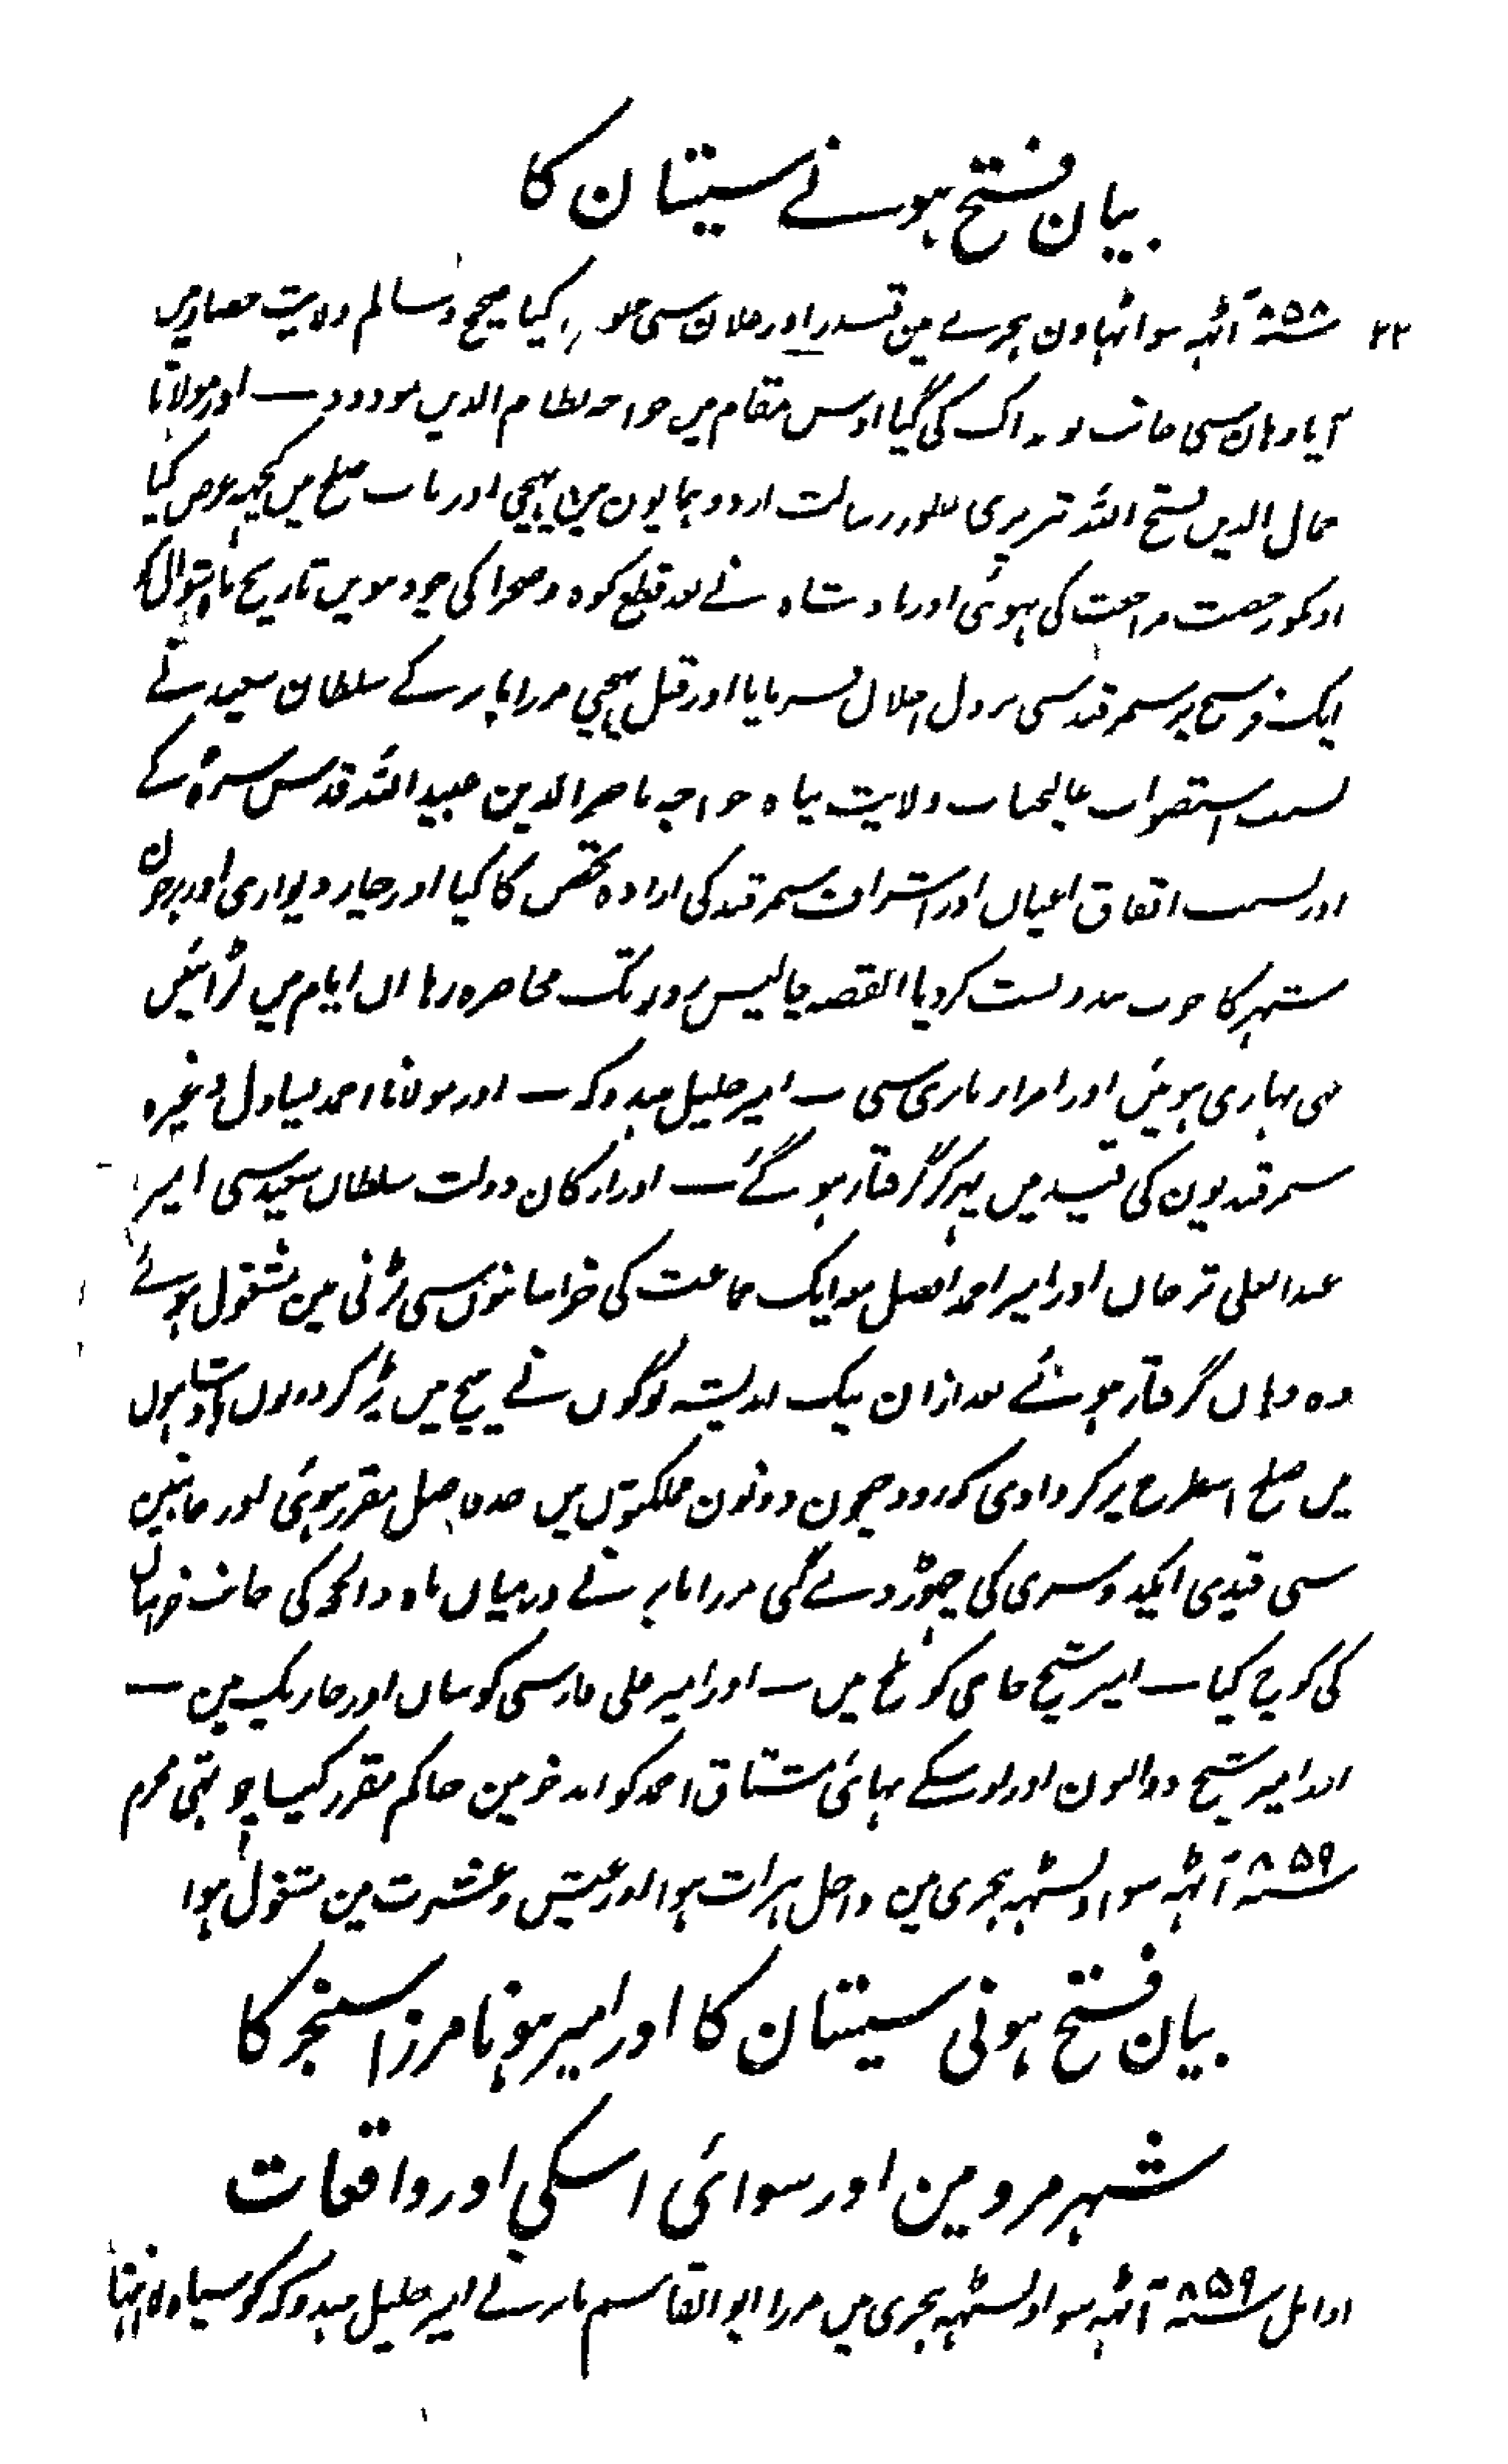 بیان فتح ہونے سیستان کا
۲۲ ۸۵۸ سنہ آٹہہ سو اٹہاون ہجرے مین قندز اور بقلان سی عبور کیا صحیح و سالم ولایت حصار میں
آیا وہان سی جانب کی گیا اوس مقام میں خواجہ نظام الدین مودود — اور مولانا
جمال الدین فتح اللہ تبریزی بطور رسالت اردو ہمایون مین پہنچی اور باب صلح میں کچہہ عرض کیا
اونکو رخصت مراجعت کی ہوئی اور بادشاہ نے بعد قطع کوہ و صحرا کی چودھویں تاریخ ماہ شوال کو
ایک فرسخ پر سمرقند سی نزول اجلال فرمایا اور قبل پہنچی مرزا بابر کے سلطان سعید نے
بسبب استصواب عالیجناب ولایت پناہ خواجہ ناصر الدین عبید اللہ قدس سرہ کے
اور بسبب اتفاق اعیان اور اشراف سمرقند کی ارادہ تحصن کا کیا اور چار دیواری اور برجون
شہر کا خوب بندوبست کر دیا القصہ چالیس روز تک محاصرہ رہا ان ایام میں لڑائیں
بہی بہاری ہوئیں اور امراء بابری سی — امیر خلیل ہندوکہ — اور مولانا احمد یساول وغیرہ
سمرقندیون کی قید میں پہر کر گرفتار ہو گئے — اور ارکان دولت سلطان سعید سی امیر
عبد العلی ترخان اور امیر احمد افضل معہ ایک جماعت کی خراسانوں سی لڑنی مین مشغول ہوئے
وہ وہاں گرفتار ہوئے بعد ازان نیک اندیشہ لوگوں نے بیچ میں پڑ کر دونوں بادشاہوں
میں صلح اسطرح پر کروادی کہ رود جیحون دونون مملکتوں میں حد فاصل مقرر ہوئی اور جانبین
سی قیدی ایکدوسری کی چھوڑ دے گی مرزا بابر نے درمیاں ماہ ذالحجہ کی جانب خراسان
کی کوچ کیا — امیر شیخ حاجی کو بلخ میں — اور امیر علی فارسی کو سان اور چاریک مین —
اور امیر شیخ ذوالنون اور اوسکے بہائی مشتاق احمد کو اندخو مین حاکم مقرر کیا چوتہی محرم
۸۵۹ سنہ آٹہہ سو اونسٹہہ ہجری مین داخل ہرات ہوا اور عیش و عشرت مین مشغول ہوا
بیان فتح ہونی سیستان کا اور امیر ہونا مرزا سنجر کا
شہر مرو مین اور سوائی اسکی اور واقعات
اوایل ۸۵۹ سنہ آٹہہ سو اونسٹہہ ہجری میں مرزا ابو القاسم بابر نے امیر خلیل ہندوکہ کو سپاہ